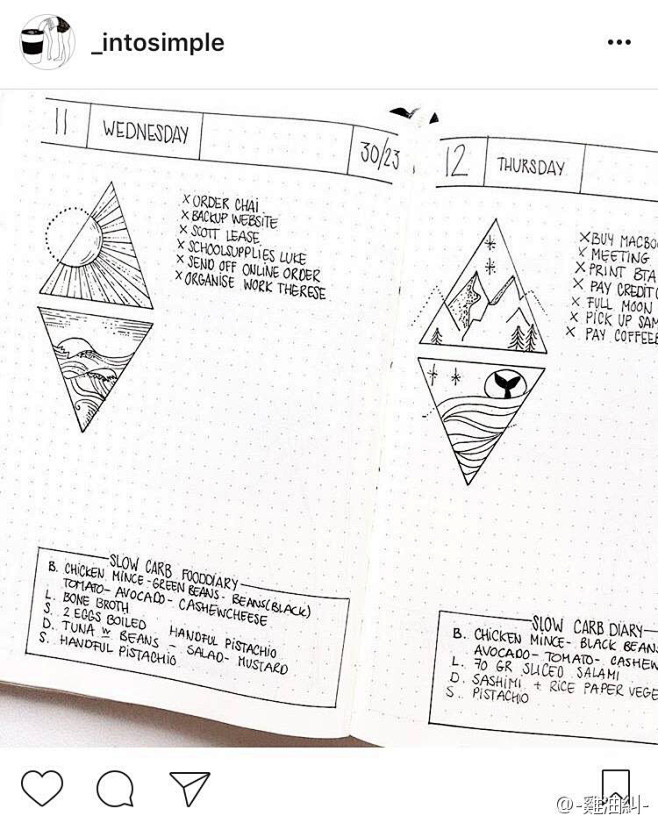 _intosimple
11 WEDNESDAY 30/23
X ORDER CHAI
X BACKUP WEBSITE
X SCOTT LEASE
X SCHOOLSUPPLIES LUKE
X SEND OFF ONLINE ORDER
X ORGANISE WORK THERESE
SLOW CARB FOODDIARY
B. CHICKEN MINCE - GREEN BEANS - BEANS (BLACK)
TOMATO - AVOCADO - CASHEWCHEESE
L. BONE BROTH
S. 2 EGGS BOILED HANDFUL PISTACHIO
D. TUNA w BEANS - SALAD - MUSTARD
S. HANDFUL PISTACHIO
12 THURSDAY
X BUY MACBO
X MEETING
X PRINT BTA
X PAY CREDIT
X FULL MOON
X PICK UP SAM
X PAY COFFEE
SLOW CARB DIARY
B. CHICKEN MINCE - BLACK BEANS
AVOCADO - TOMATO - CASHEW
L. 70 GR SLICED SALAMI
D. SASHIMI + RICE PAPER VEGE
S. PISTACHIO
@-雞油糾-